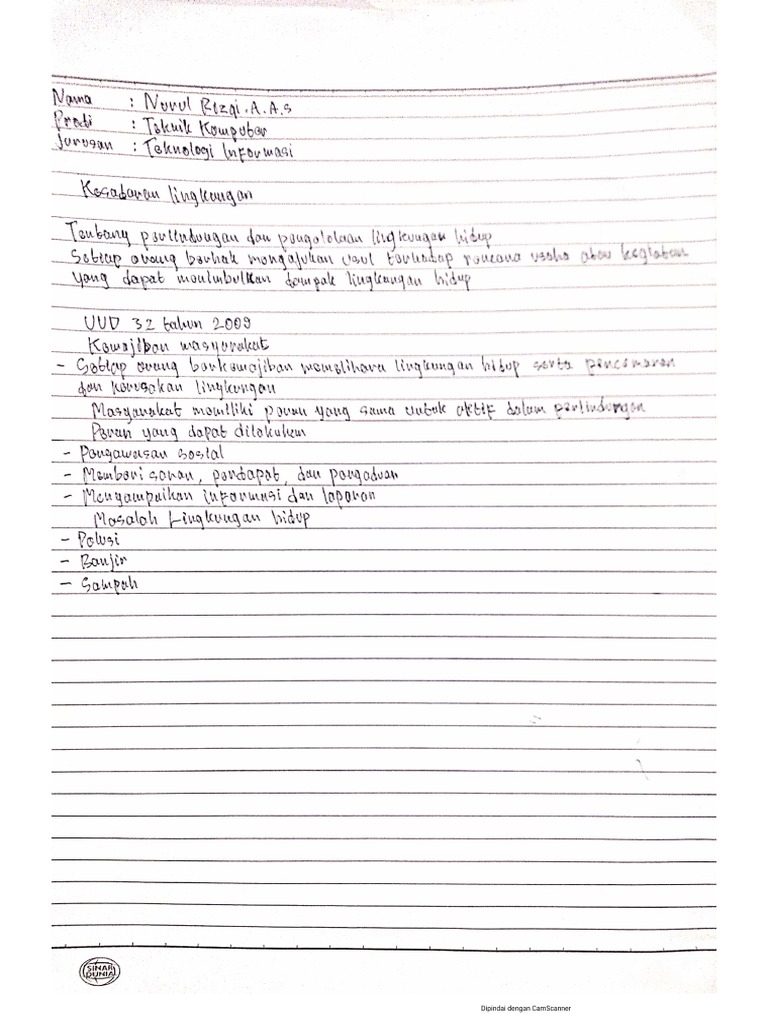 Nama : Nurul Rizqi.A.A.S
Prodi : Teknik Komputer
Jurusan : Teknologi Informasi
Kesadaran lingkungan
Tentang perlindungan dan pengelolaan lingkungan hidup
Setiap orang berhak mengajukan usul terhadap rencana usaha atau kegiatan
yang dapat menimbulkan dampak lingkungan hidup
UUD 32 tahun 2009
Kewajiban masyarakat
- Setiap orang berkewajiban memelihara lingkungan hidup serta pencemaran
dan kerusakan lingkungan
Masyarakat memiliki peran yang sama untuk aktif dalam perlindungan
Peran yang dapat dilakukan
- Pengawasan sosial
- Memberi saran, pendapat, dan pengaduan
- Menyampaikan informasi dan laporan
Masalah Lingkungan hidup
- Polusi
- Banjir
- Sampah
SINAR
DUNIA
Dipindai dengan CamScanner